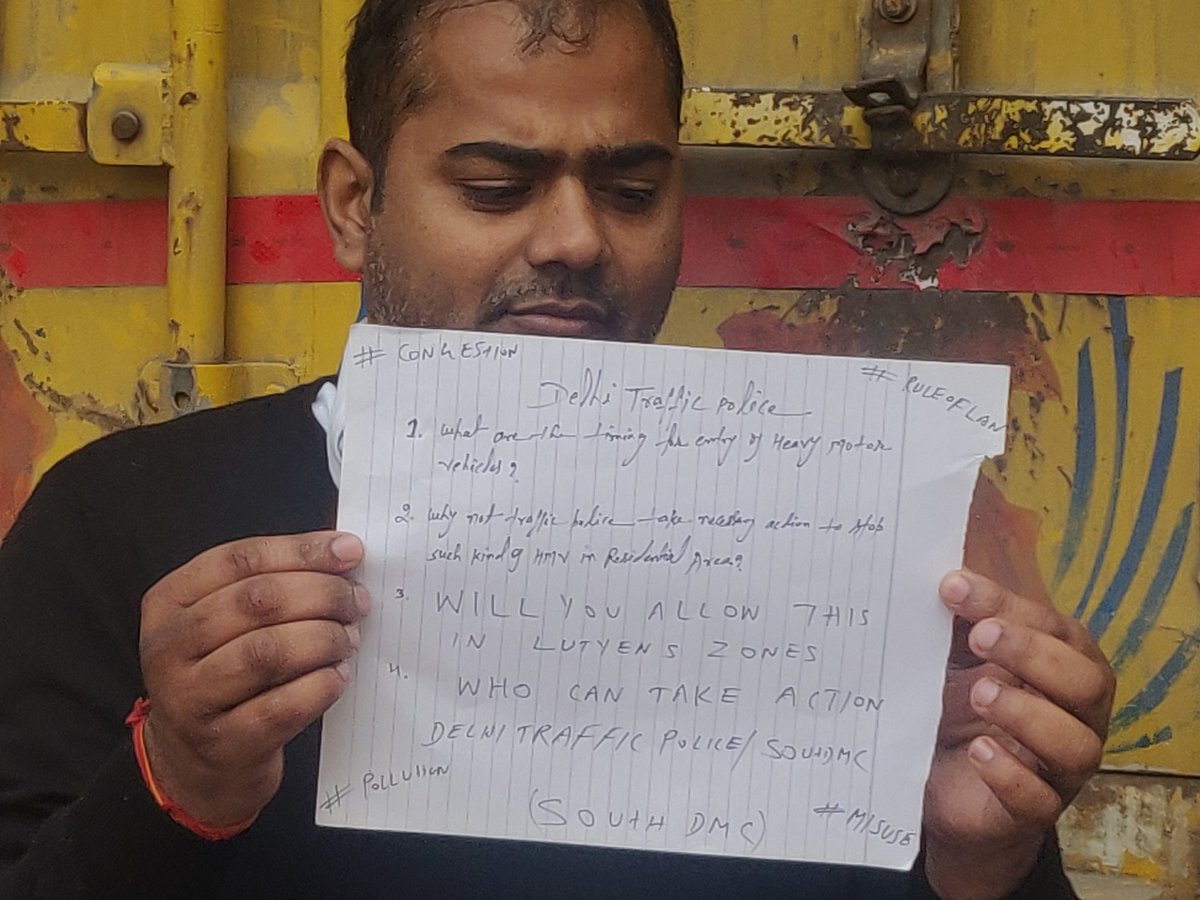 # CONGESTION
# RULE OF LAW
Delhi Traffic Police
1. What are the timing for entry of Heavy Motor
vehicles?
2. Why not traffic police take necessary action to stop
such kind of HMV in Residential Area?
3. WILL YOU ALLOW THIS
IN LUTYENS ZONES
4. WHO CAN TAKE ACTION
DELHI TRAFFIC POLICE/SOUTHDMC
# POLLUTION
(SOUTH DMC)
# MISUSE